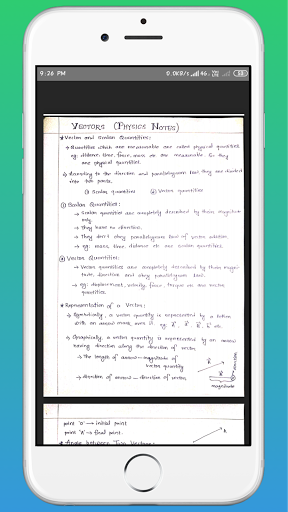 9:36 PM 0.0KB/s 4G
VECTORS (PHYSICS NOTES)
* Vector and Scalar Quantities:
→ Quantities which are measurable are called physical quantities.
eg: distance, time, force, mass etc are measurable. So they
are physical quantities.
→ According to the direction and parallelogram law, they are divided
into two parts.
(i) Scalar quantities (ii) Vector quantities
(i) Scalar Quantities:
→ Scalar quantities are completely described by their magnitude
only.
→ They have no direction.
→ They don't obey parallelogram law of vector addition.
→ eg: mass, time, distance etc are scalar quantities.
(ii) Vector Quantities:
→ Vector quantities are completely described by their magni-
tude, direction and obey parallelogram law.
→ eg: displacement, velocity, force, torque are the vector
quantities.
* Representation of a Vector:
→ Symbolically, a vector quantity is represented by a letter
with an arrow
→ Graphically, a vector quantity is represented by an arrow
having direction along the direction of vector.
→ The length of arrow → magnitude of
vector quantity
→ direction of arrow → direction of vector
direction
magnitude
point 'O' → initial point
point 'A' → final point.
* Angle between Two Vectors:
A